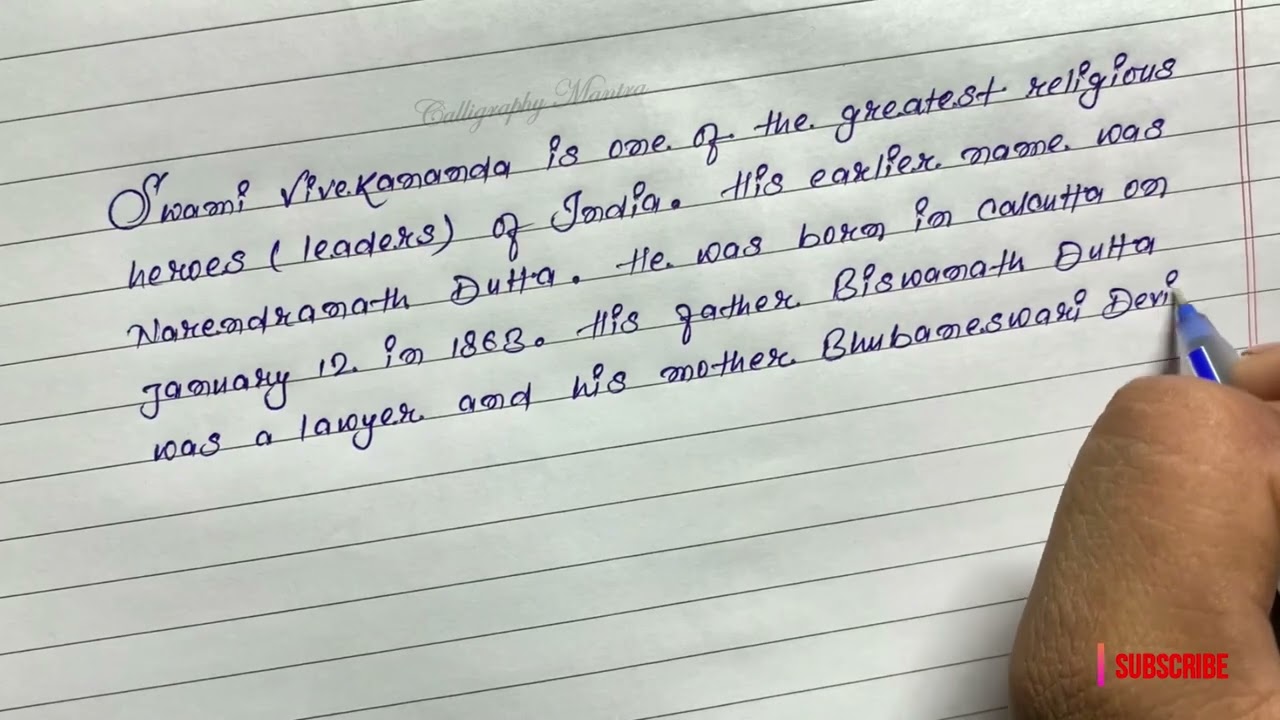 Calligraphy Mantra
Swami Vivekananda is one of the greatest religious
heroes (leaders) of India. His earlier name was
Narendranath Dutta. He was born in Calcutta on
January 12 in 1863. His gather Biswanath Dutta
was a lawyer and his mother Bhubaneswari Devi
SUBSCRIBE